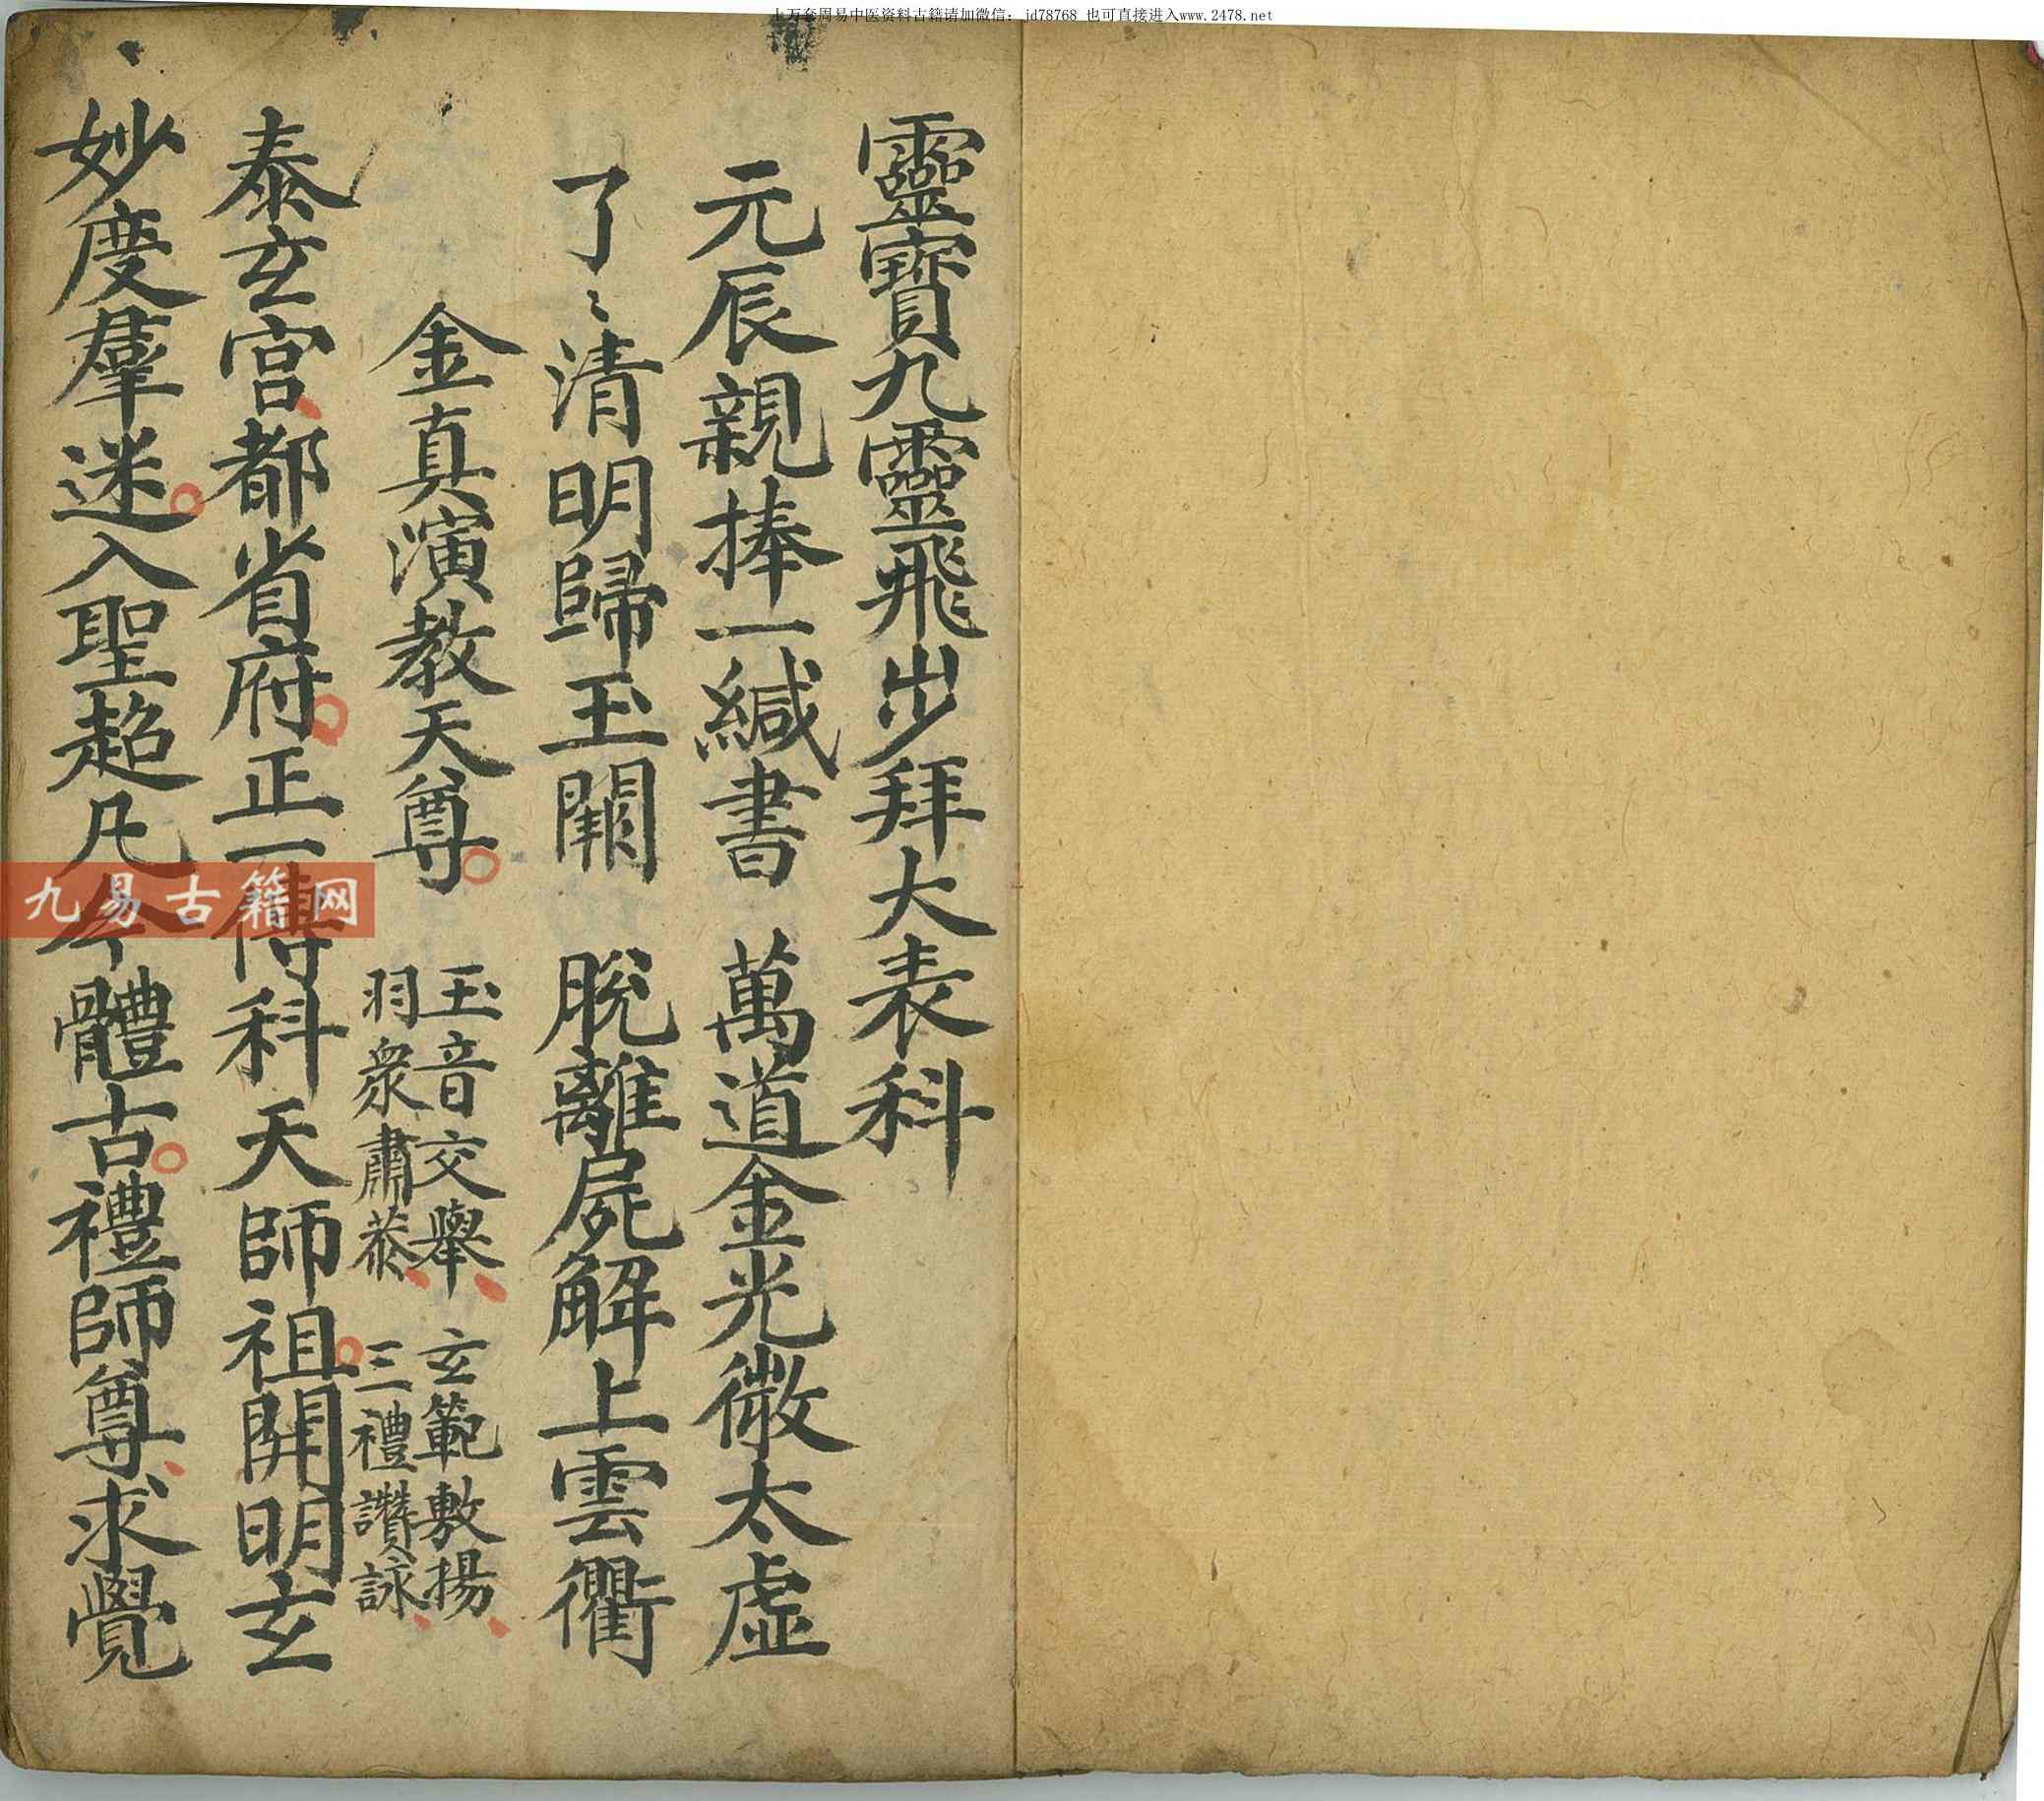 上万套周易中医资料古籍请加微信: jd78768 也可直接进入www.2478.net
靈寶九靈飛步拜大表科
元辰親捧一緘書 萬道金光徹太虛
了〻清明歸玉闕 脫離屍解上雲衢
金真演教天尊 玉音交舉 玄範敷揚
羽衆肅恭 三禮讚詠
泰玄宮都省府正一傳科天師祖開明玄
妙度羣迷入聖超凡今體古禮師尊求覺
九易古籍网